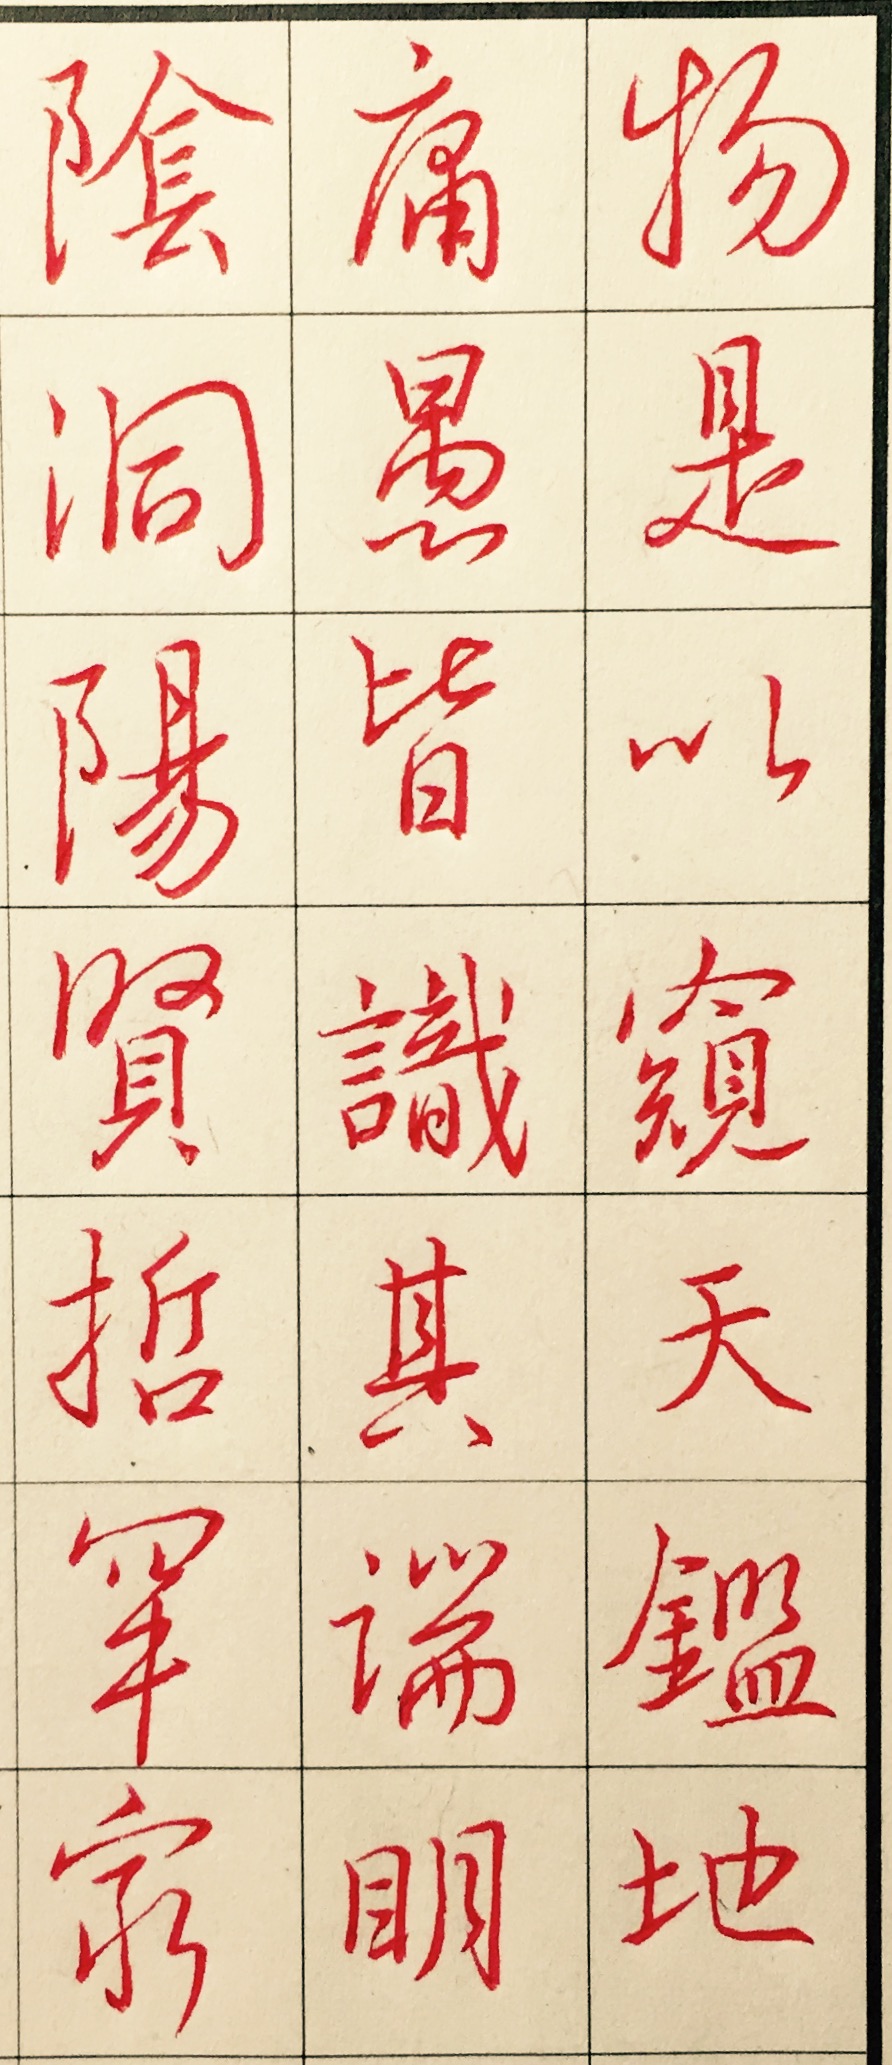 物是以窺天鑑地
庸愚皆識其端明
陰洞陽賢哲罕窮